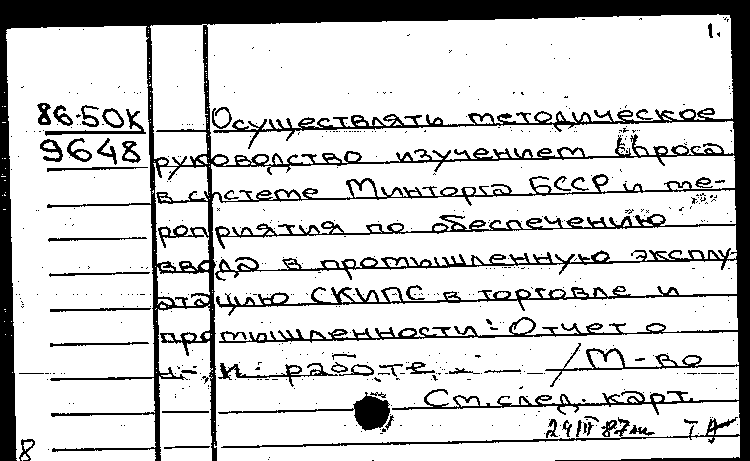 1.
86-50К Осуществлять методическое
9648 руководство изучением спроса
в системе Минторга БССР и ме-
роприятия по обеспечению
ввода в промышленную эксплу-
атацию СКИПС в торговле и
промышленности: Отчет о
н.-и. работе. - /М-во
См. след. карт.
8